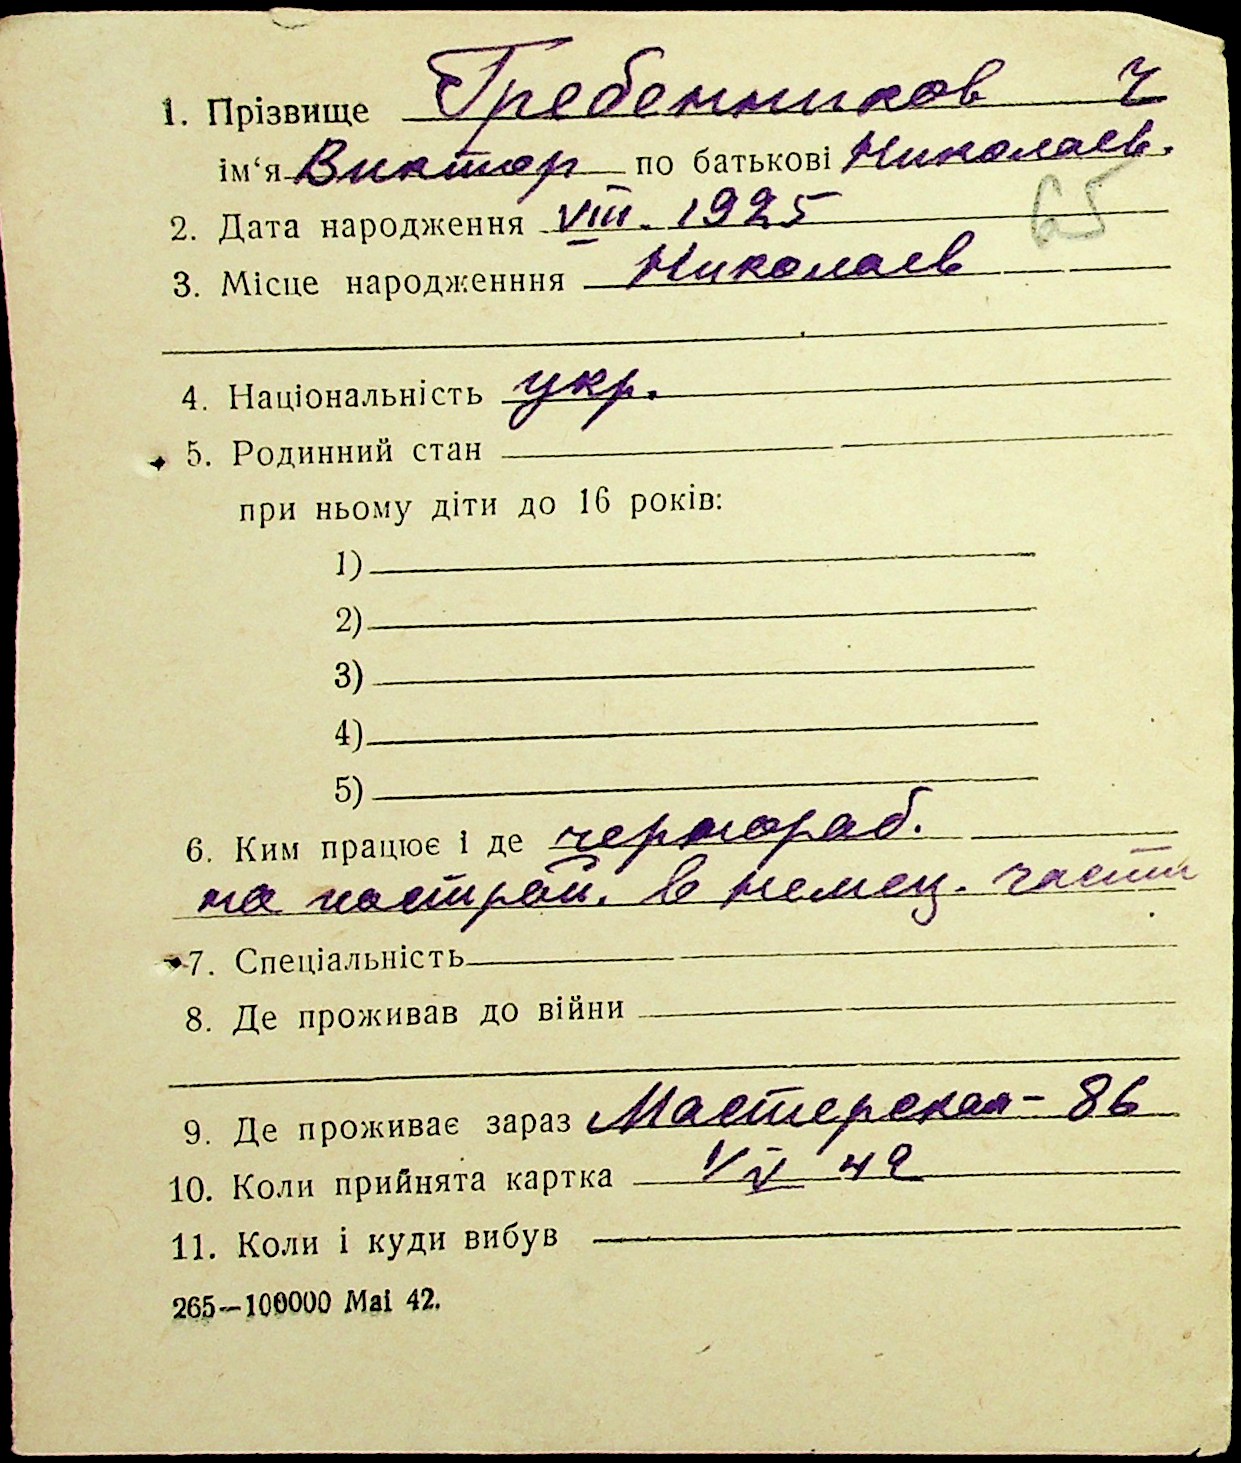 1. Прізвище Гребенников Ч
ім‘я Виктор по батькові Николаев.
2. Дата народження VIII. 1925
65
3. Місце народженння Николаев
4. Національність укр.
5. Родинний стан
при ньому діти до 16 років:
1)
2)
3)
4)
5)
6. Ким працює і де чернораб.
на построй. в немец. части
7. Спеціальність
8. Де проживав до війни
9. Де проживає зараз Мастерская - 86
10. Коли прийнята картка V 42
11. Коли і куди вибув
265—100000 Mai 42.